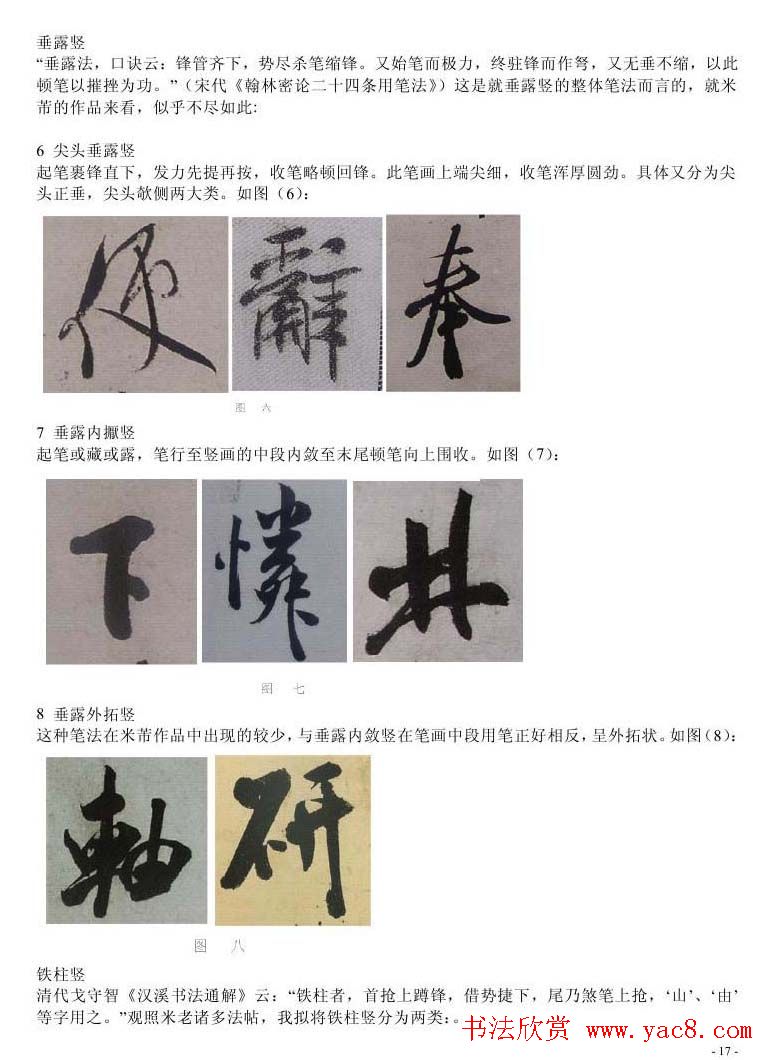 垂露竖
“垂露法，口诀云：锋管齐下，势尽杀笔缩锋。又始笔而极力，终驻锋而作弩，又无垂不缩，以此
顿笔以摧挫为功。”（宋代《翰林密论二十四条用笔法》）这是就垂露竖的整体笔法而言的，就米
芾的作品来看，似乎不尽如此:
6 尖头垂露竖
起笔裹锋直下，发力先提再按，收笔略顿回锋。此笔画上端尖细，收笔浑厚圆劲。具体又分为尖
头正垂，尖头欹侧两大类。如图（6）：
便 辭 奉
图 六
7 垂露内擫竖
起笔或藏或露，笔行至竖画的中段内敛至末尾顿笔向上围收。如图（7）：
下 憐
图 七
8 垂露外拓竖
这种笔法在米芾作品中出现的较少，与垂露内敛竖在笔画中段用笔正好相反，呈外拓状。如图（8）：
軸 研
图 八
铁柱竖
清代戈守智《汉溪书法通解》云：“铁柱者，首抢上蹲锋，借势捷下，尾乃煞笔上抢，‘山’、‘由’
等字用之。”观照米老诸多法帖，我拟将铁柱竖分为两类：。
书法欣赏 www.yac8.com
- 17 -